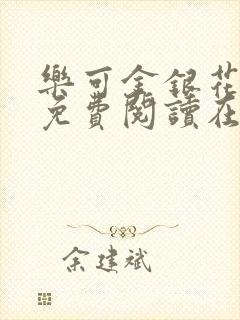 樂可金銀花
免費閱讀在
余建斌